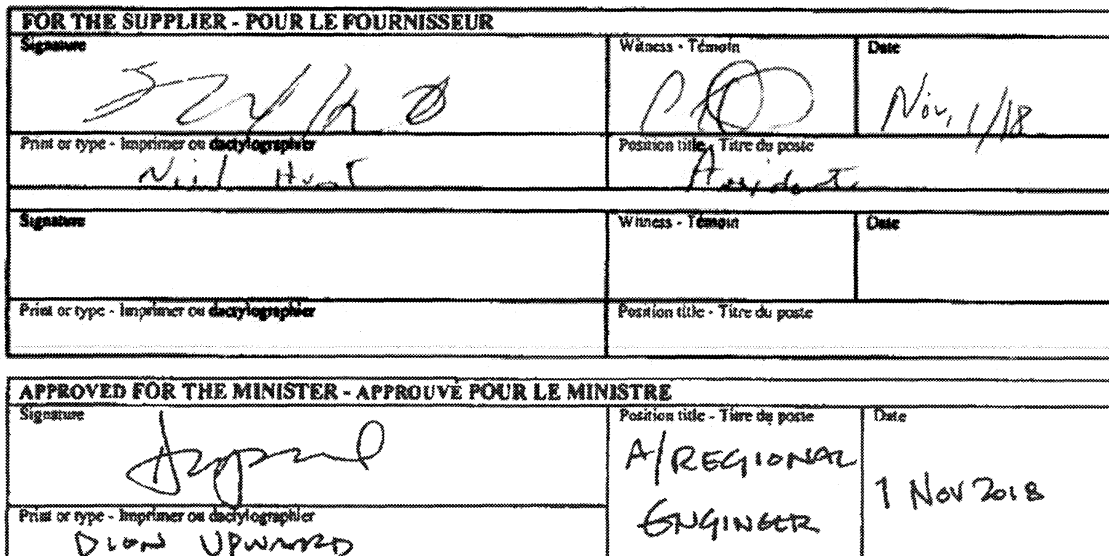 FOR THE SUPPLIER - POUR LE FOURNISSEUR
Signature
Witness - Témoin
Date
Nov, 1/18
Print or type - Imprimer ou dactylographier
Position title - Titre du poste
Hunt
Signature
Witness - Témoin
Date
Print or type - Imprimer ou dactylographier
Position title - Titre du poste
APPROVED FOR THE MINISTER - APPROUVÉ POUR LE MINISTRE
Signature
Position title - Titre du poste
Date
A/REGIONAL
ENGINEER
1 NOV 2018
Print or type - Imprimer ou dactylographier
DION UPWARD